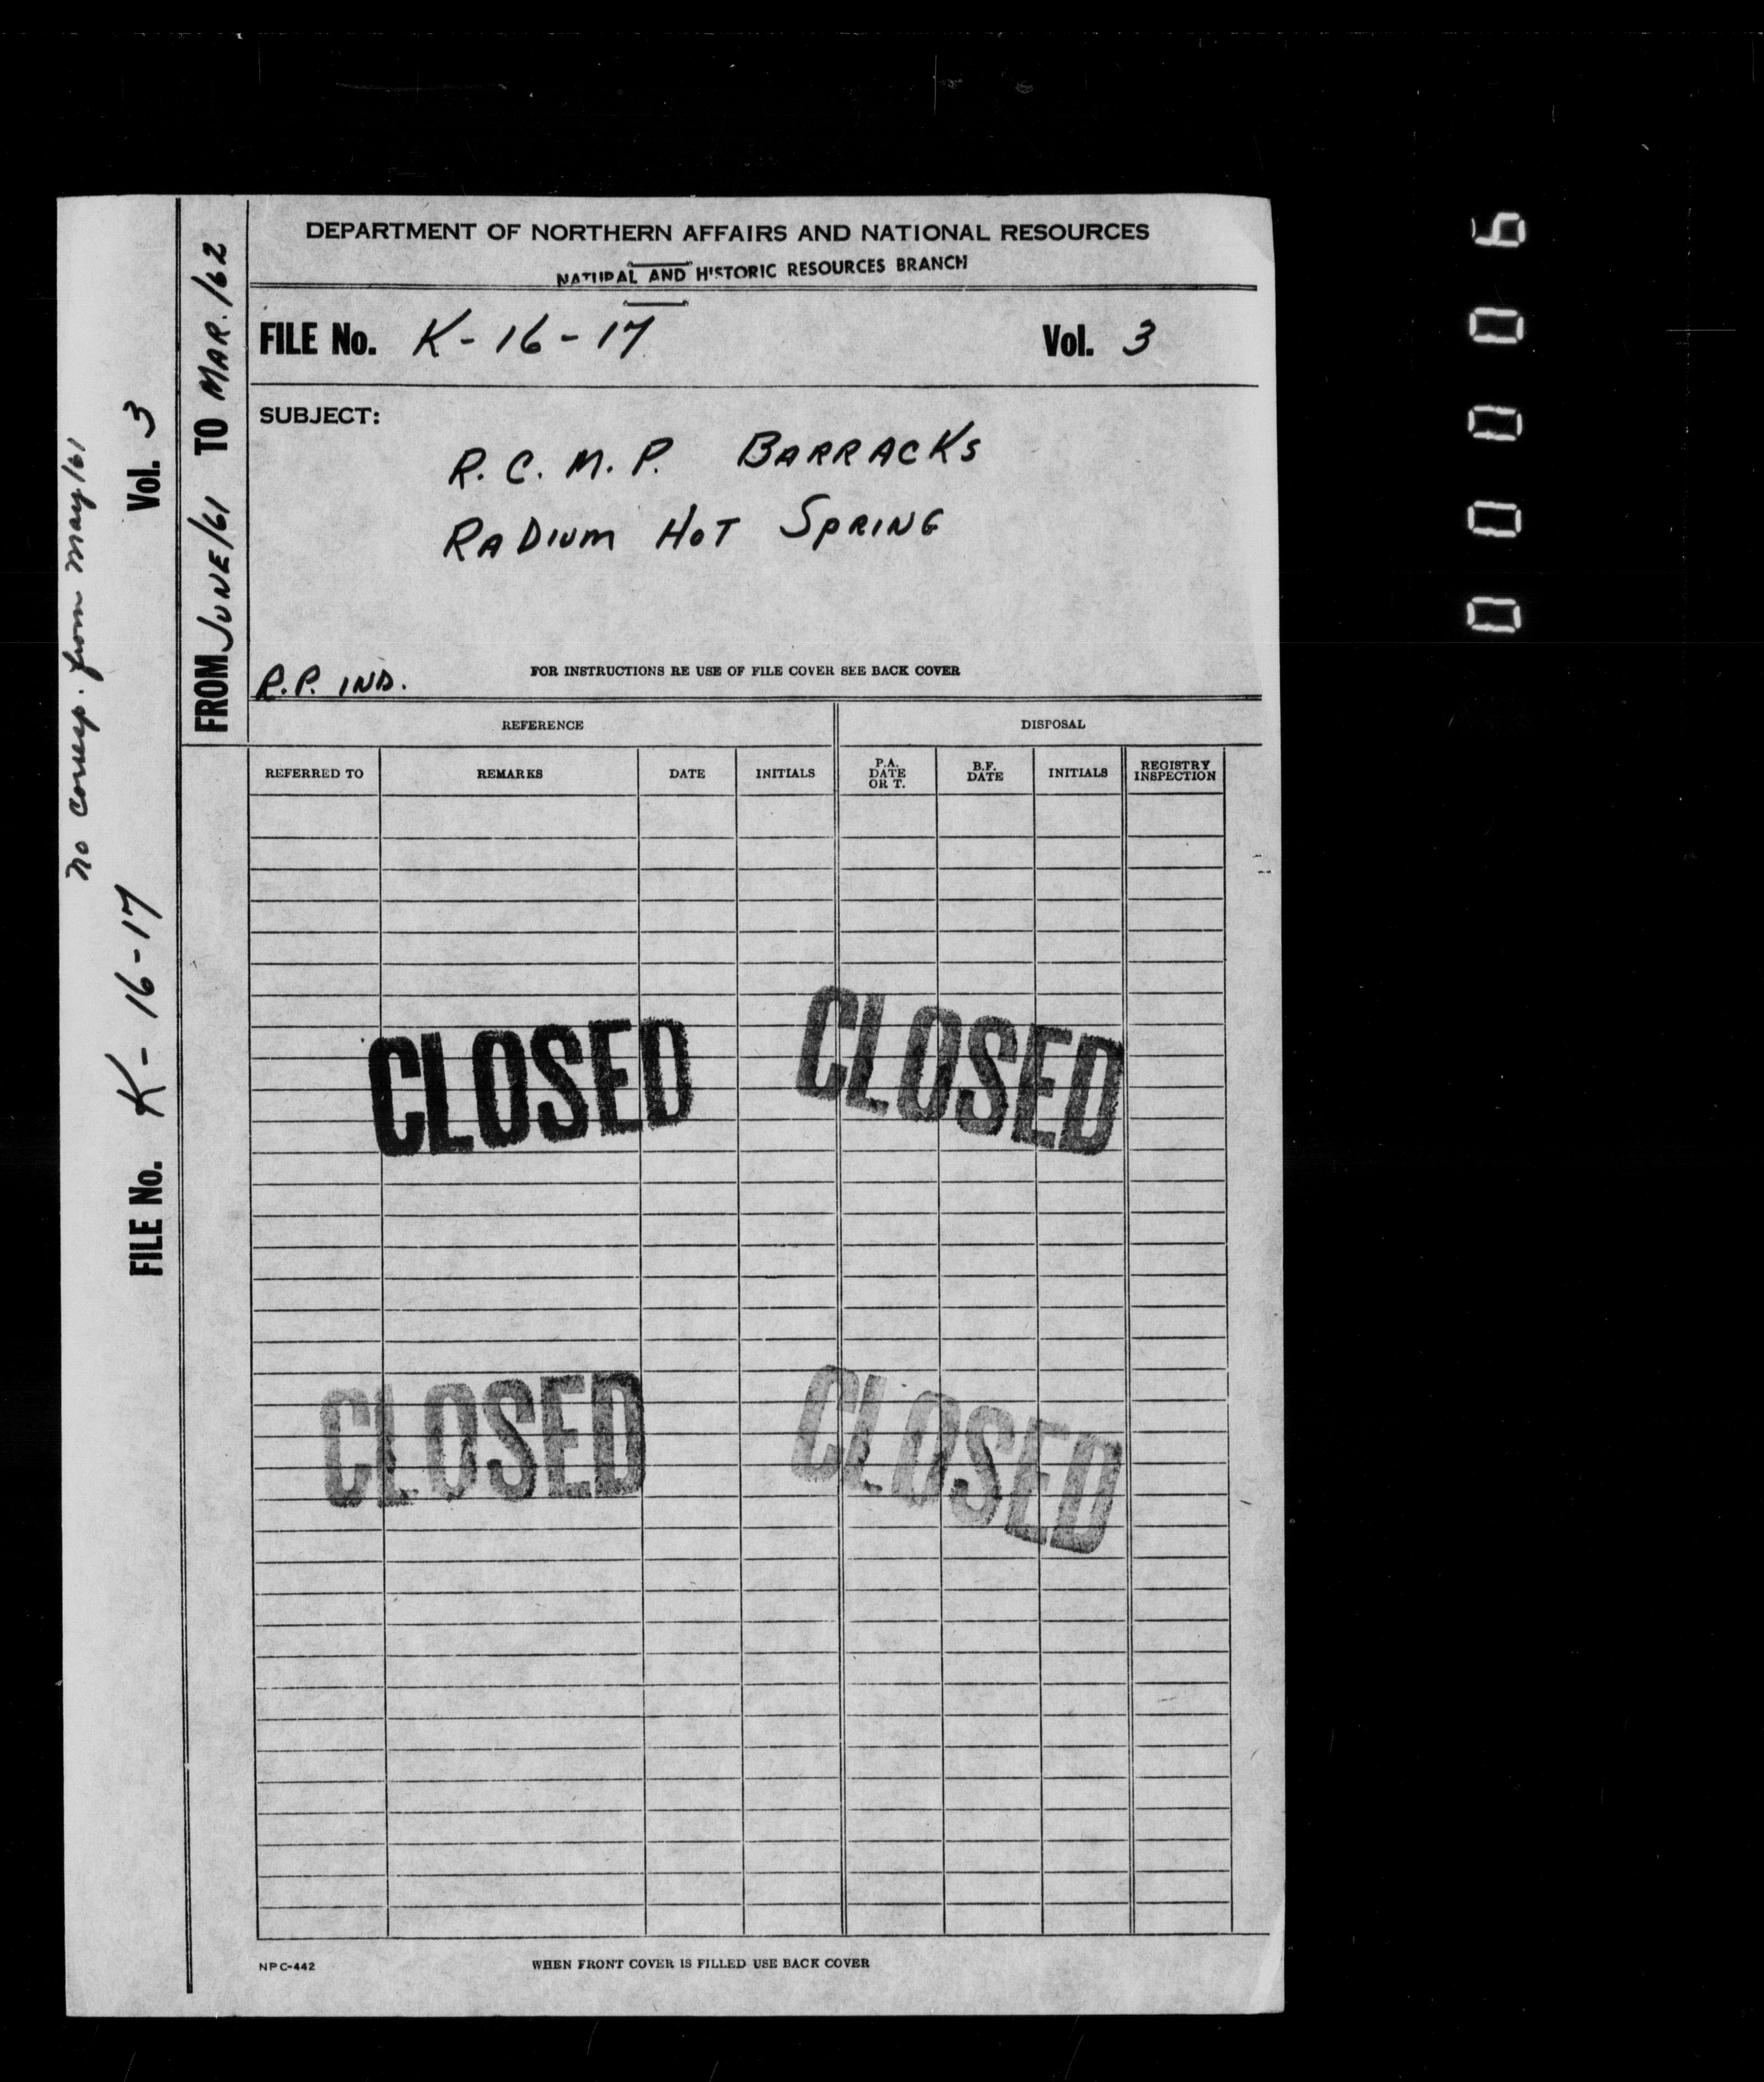 DEPARTMENT OF NORTHERN AFFAIRS AND NATIONAL RESOURCES
NATURAL AND HISTORIC RESOURCES BRANCH
FILE No. K-16-17 Vol. 3
SUBJECT:
R.C.M.P. BARRACKS
RADIUM HOT SPRING
R.P. IND.
FOR INSTRUCTIONS RE USE OF FILE COVER SEE BACK COVER
REFERENCE DISPOSAL
REFERRED TO REMARKS DATE INITIALS P.A. DATE OR T. B.F. DATE INITIALS REGISTRY INSPECTION
CLOSED CLOSED
CLOSED CLOSED
NPC-442 WHEN FRONT COVER IS FILLED USE BACK COVER
FROM JUNE/61 TO MAR./62
FILE No. K-16-17 Vol. 3
no corresp. from may/61
00006